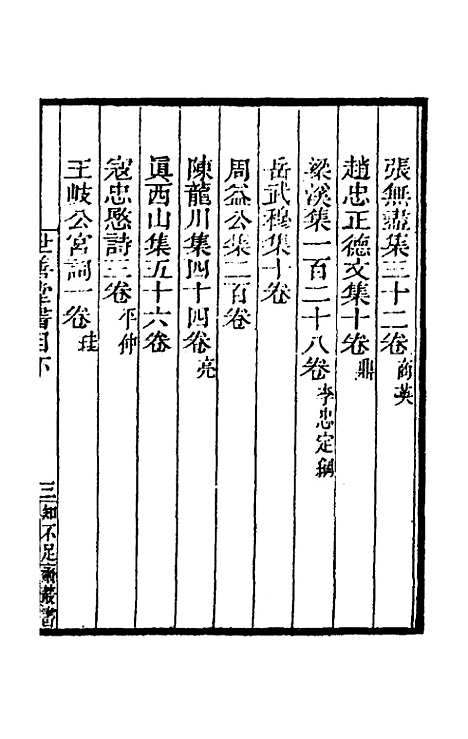 張無盡集三十二卷商英
趙忠正德文集十卷鼎
梁溪集一百二十八卷李忠定綱
岳武穆集十卷
周益公集二百卷
陳龍川集四十四卷亮
眞西山集五十六卷
寇忠愍詩三卷平仲
王岐公宮詞一卷珪
世善堂書目下 三 知不足齋叢書